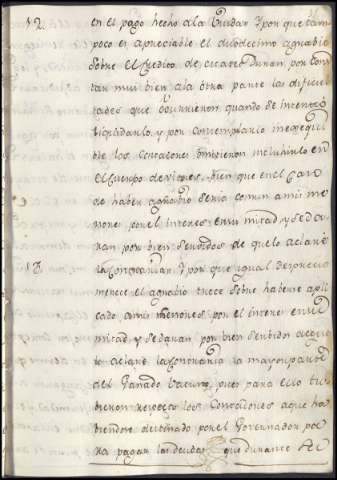 12. en el pago hecho ala Ciudad. Y por que tam
poco es apreciable el duodecimo agravio
sobre el credito de Duran, por Cons
tar mui bien ala otra parte las dificul
tades que ocurrieron quando se intentó
liquidarlo, y por contemplarlo inexequi
ble los Contadores omitieron incluirlo en
el Cuerpo de vienes, bien que en el Caso
de haber agravio seria comun a mis me
nores por el interes en su mitad y se da
ran por bien servidos de que lo aclare
13. la Contraria. Y por que igual desprecio
merece el agravio trece sobre haberse apli
cado a mis menores por el interes en su
mitad, y se daran por bien servidos de que
lo aclare la Contraria la mayor parte
del Ganado Vacuno, pues para ello tu
bieron respecto los Contadores a que ha
biendose destinado por el Governador pa
ra pagar las deudas que durante